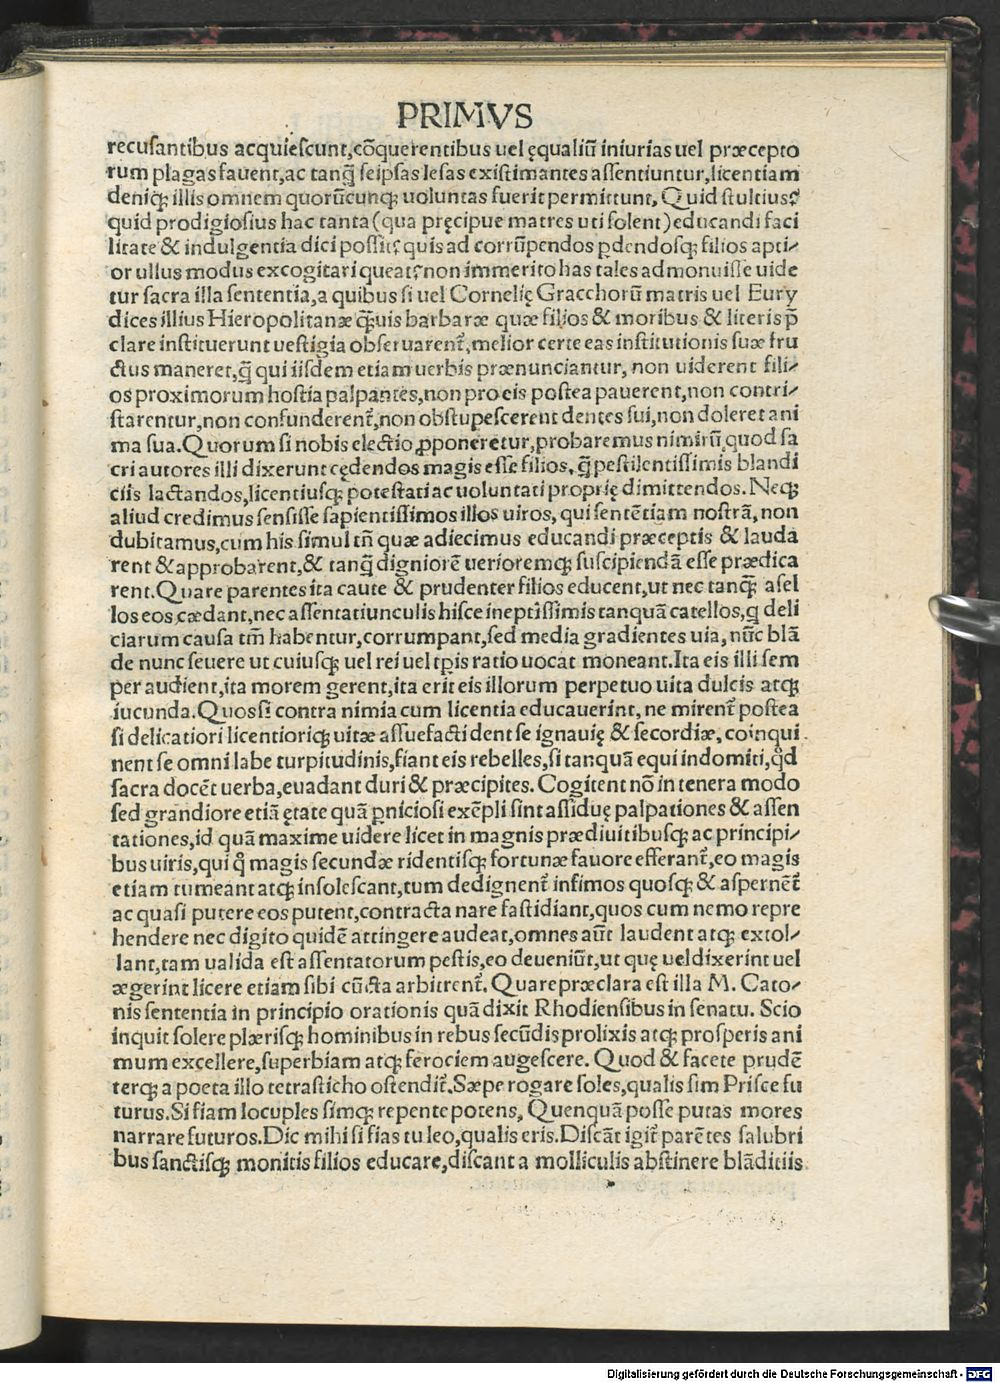 PRIMVS
recusantibus acquiescunt,cōquerentibus uel ęqualiū iniurias uel præcepto
rum plagas fauent,ac tanq̃ seipsas lesas existimantes assentiuntur,licentiam
deniqꝫ illis omnem quorūcunqꝫ uoluntas fuerit permittunt, Quid stultius?
quid prodigiosius hac tanta (qua pręcipue matres uti solent) educandi faci
litate & indulgentia dici possit? quis ad corrūpendos ꝑdendosqꝫ filios apti⸗
or ullus modus excogitari queat? non immerito has tales admonuisse uide
tur sacra illa sententia,a quibus si uel Cornelię Gracchorū matris uel Eury
dices illius Hieropolitanæ q̃uis barbaræ quæ filios & moribus & literis p̄
clare instituerunt uestigia obseruarent᷑,melior certe eas institutionis suæ fru
ctus maneret,q̃ qui iisdem etiam uerbis prænunciantur, non uiderent fili⸗
os proximorum hostia palpantes,non pro eis postea pauerent,non contri⸗
starentur,non confunderent᷑,non obstupescerent dentes sui,non doleret ani
ma sua.Quorum si nobis electio ꝓponeretur,probaremus nimirū,quod sa
cri autores illi dixerunt cędendos magis esse filios, q̃ pestilentissimis blandi
ciis lactandos,licentiusqꝫ potestati ac uoluntati proprię dimittendos. Neqꝫ
aliud credimus sensisse sapientissimos illos uiros, qui sentētiam nostrā, non
dubitamus,cum his simul tñ quæ adiecimus educandi præceptis & lauda
rent & approbarent,& tanq̃ digniorē uerioremqꝫ suscipiendā esse prædica
rent.Quare parentes ita caute & prudenter filios educent,ut nec tanq̃ asel
los eos cædant,nec assentatiunculis hisce ineptissimis tanquā catellos,q̃ deli
ciarum causa tm̄ habentur,corrumpant,sed media gradientes uia, nūc blā
de nunc seuere ut cuiusqꝫ uel rei uel tꝑis ratio uocat moneant.Ita eis illi sem
per audient,ita morem gerent,ita erit eis illorum perpetuo uita dulcis atqꝫ
iucunda.Quos si contra nimia cum licentia educauerint, ne mirent᷑ postea
si delicatiori licentioriqꝫ uitæ assuefacti dent se ignauię & secordiæ, coinqui
nent se omni labe turpitudinis,fiant eis rebelles,si tanquā equi indomiti,qd̄
sacra docēt uerba,euadant duri & præcipites. Cogitent nō in tenera modo
sed grandiore etiā ętate quā ꝑniciosi exēpli sint assiduę palpationes & assen
tationes,id quā maxime uidere licet in magnis prædiuitibusqꝫ ac principi⸗
bus uiris,qui q̃ magis secundæ ridentisqꝫ fortunæ fauore efferant᷑,eo magis
etiam tumeant atqꝫ insolescant,tum dedignent᷑ infimos quosqꝫ & aspernēt᷑
ac quasi putere eos putent,contracta nare fastidiant,quos cum nemo repre
hendere nec digito quidē attingere audeat,omnes aūt laudent atqꝫ extol⸗
lant,tam ualida est assentatorum pestis,eo deueniūt,ut quę uel dixerint uel
ægerint licere etiam sibi cūcta arbitrent᷑. Quare præclara est illa M. Cato⸗
nis sententia in principio orationis quā dixit Rhodiensibus in senatu. Scio
inquit solere plærisqꝫ hominibus in rebus secūdis prolixis atqꝫ prosperis ani
mum excellere,superbiam atqꝫ ferociem augescere. Quod & facete prudē
terqꝫ a poeta illo tetrasticho ostendit᷑.Sæpe rogare soles,qualis sim Prisce fu
turus.Si fiam locuples simqꝫ repente potens, Quenquā posse putas mores
narrare futuros.Dic mihi si fias tu leo,qualis eris.Discāt igit᷑ parētes salubri
bus sanctisqꝫ monitis filios educare,discant a molliculis abstinere blāditiis
Digitalisierung gefördert durch die Deutsche Forschungsgemeinschaft - DFG